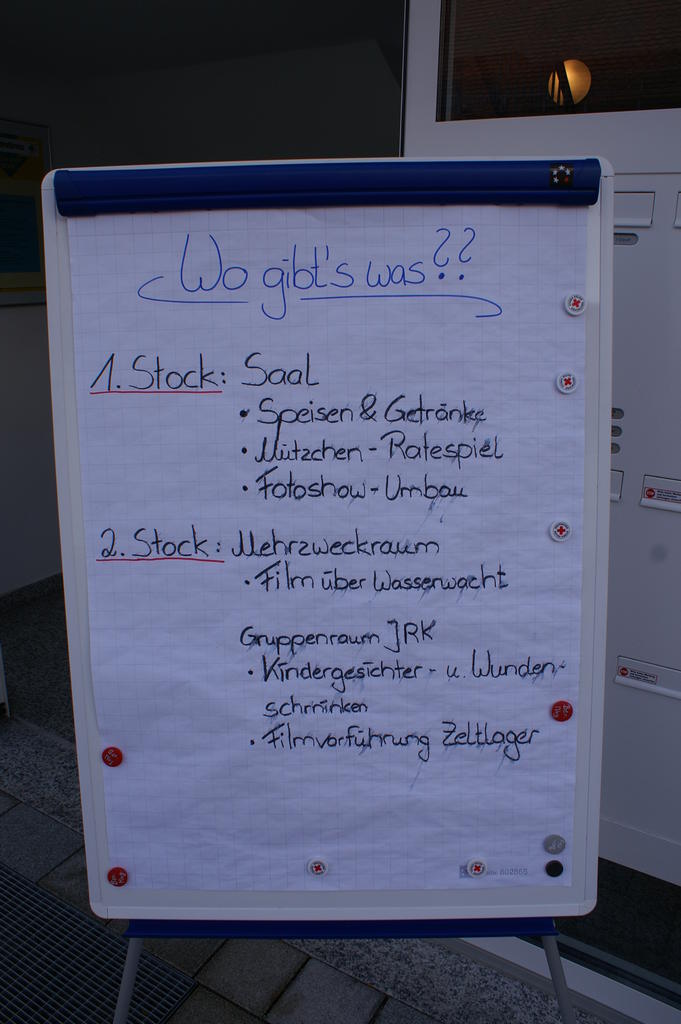 Wo gibt's was??
1. Stock: Saal
• Speisen & Getränke
• Mützchen - Ratespiel
• Fotoshow - Umbau
2. Stock: Mehrzweckraum
• Film über Wasserwacht
Gruppenraum JRK
• Kindergesichter - u. Wunden-
schminken
• Filmvorführung Zeltlager